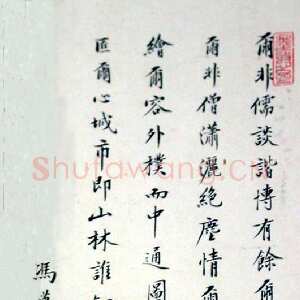 爾非儒談諧博有餘爾
爾非僧瀟灑絕塵情爾
繪爾容外樸而中通圖
匡爾心城市即山林誰
馮
Shufawang.cn